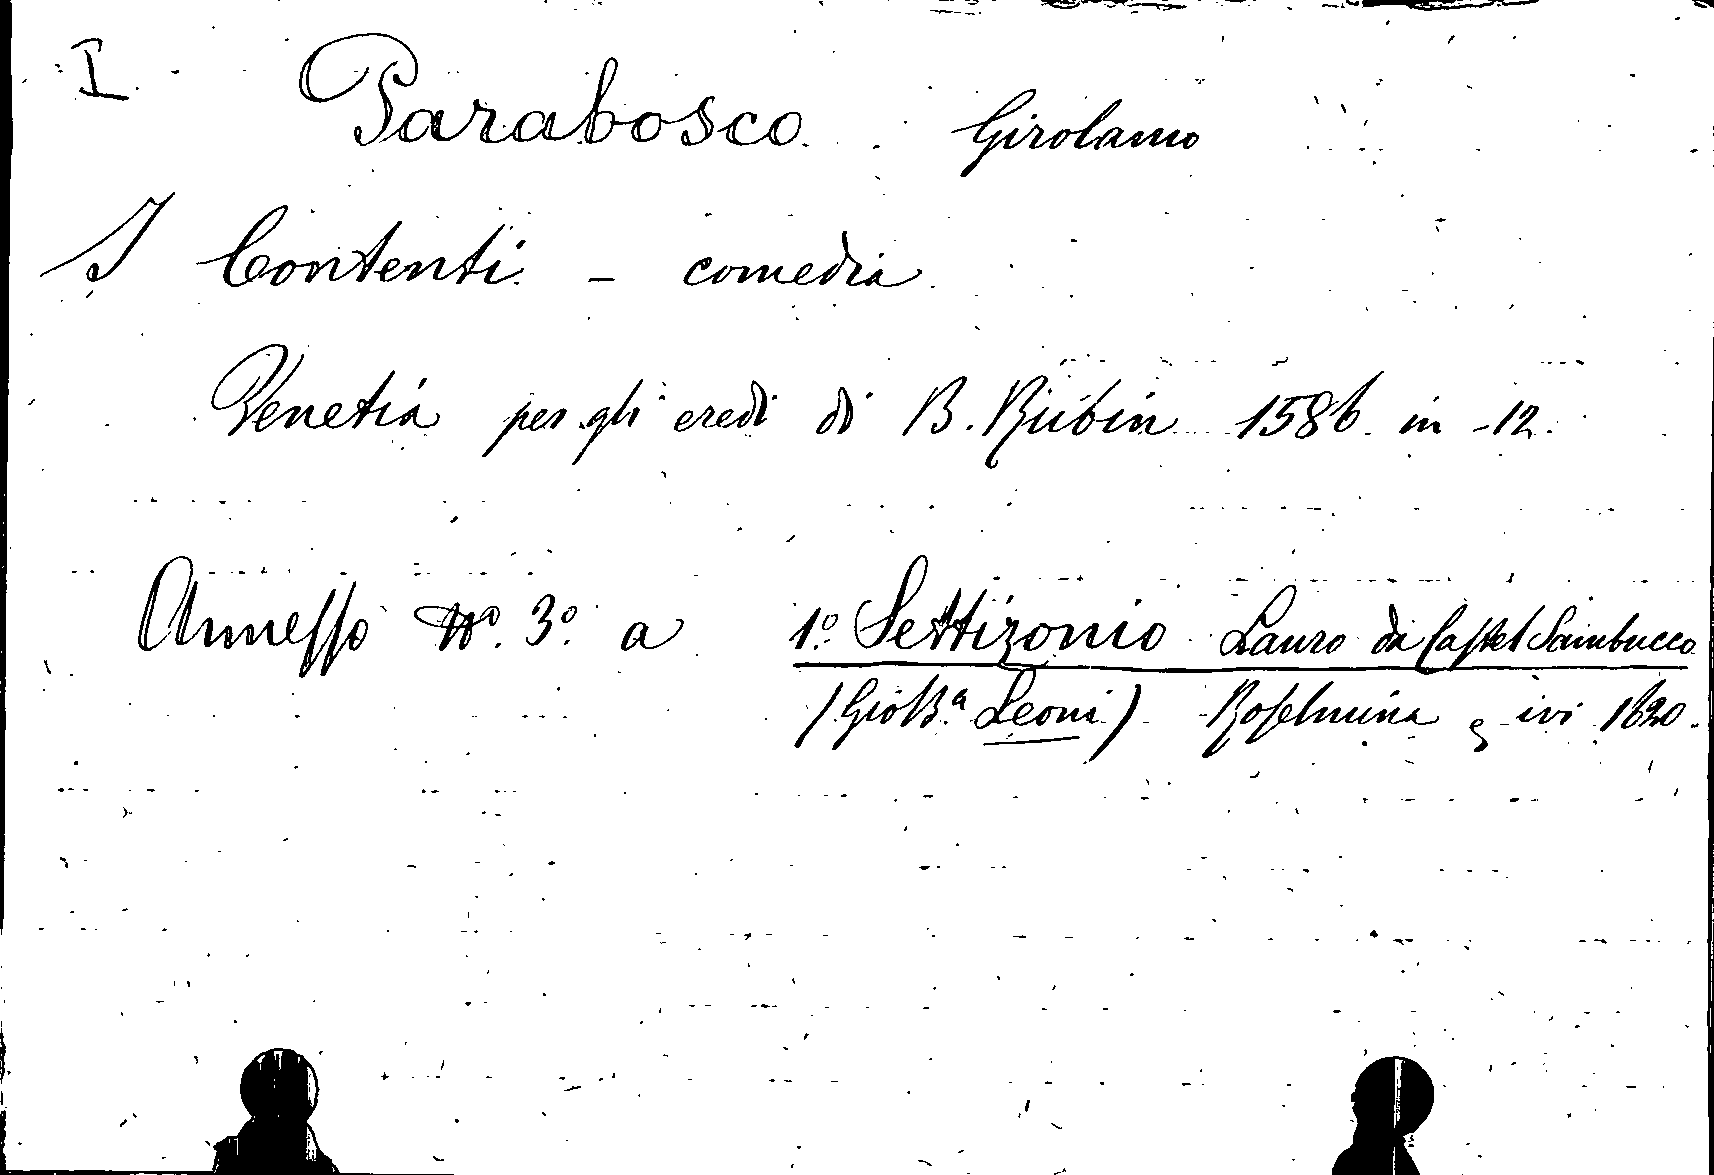 I Parabosco Girolamo
I Contenti - comedia
Venetia per gli eredi di B. Rubin 1586 in -12.
Annesso Nº. 3º. a 1º. Settizonio Lauro da Castel Sambucco
(Gio B.ª Leoni) Roselmina, ivi 1620.